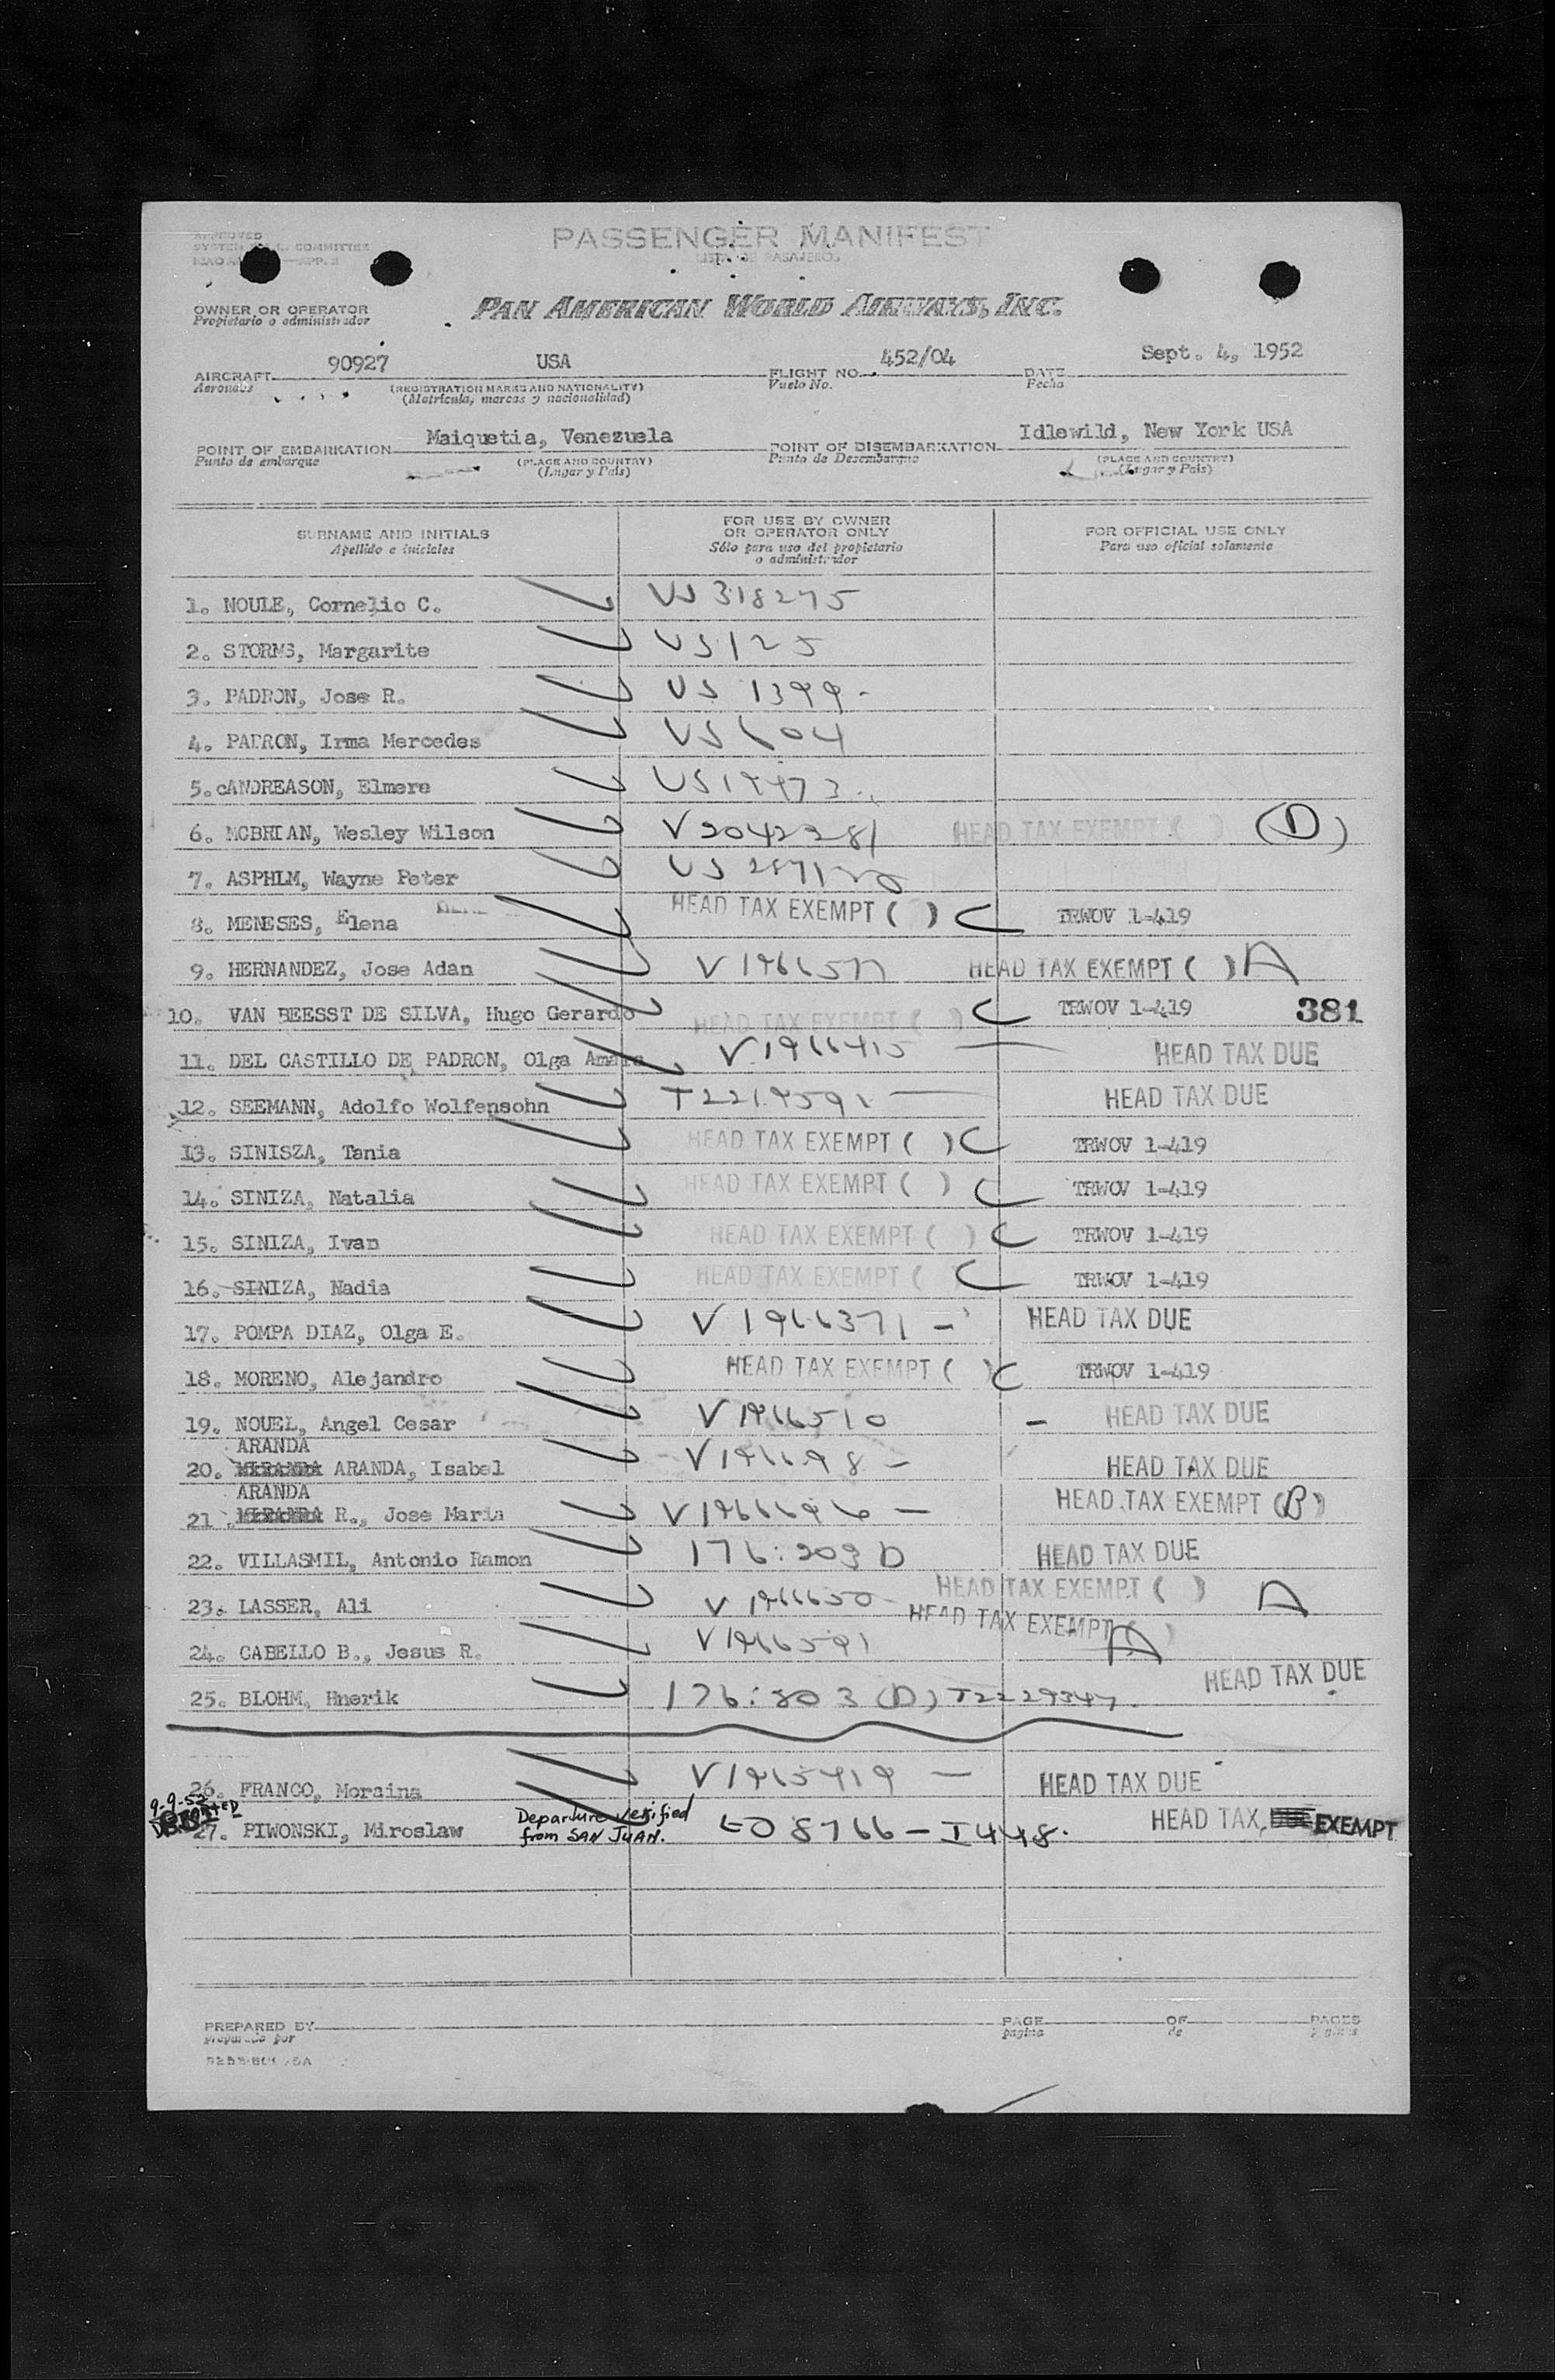 APPROVED
PASSENGER MANIFEST
LISTA DE PASAJEROS
OWNER OR OPERATOR
Propietario o administrador
PAN AMERICAN WORLD AIRWAYS, INC.
AIRCRAFT 90927 USA FLIGHT NO. 452/04 DATE Sept. 4, 1952
Aeronabe (REGISTRATION MARKS AND NATIONALITY) Vuelo No. Fecha
(Matricula, marcas y nacionalidad)
POINT OF EMBARKATION Maiquetia, Venezuela POINT OF DISEMBARKATION Idlewild, New York USA
Punto de embarque (PLACE AND COUNTRY) Punto de Desembarque (PLACE AND COUNTRY)
(Lugar y País) (Lugar y País)
SURNAME AND INITIALS FOR USE BY OWNER OR OPERATOR ONLY FOR OFFICIAL USE ONLY
Apellido e iniciales Sólo para uso del propietario o administrador Para uso oficial solamente
1. NOULE, Cornelio C. US 318275
2. STORMS, Margarite US 125
3. PADRON, Jose R. US 1399
4. PADRON, Irma Mercedes US 604
5. ANDREASON, Elmere
6. MCBRIAN, Wesley Wilson V2042281 HEAD TAX EXEMPT ( ) (D)
7. ASPHLM, Wayne Peter
8. MENESES, Elena HEAD TAX EXEMPT ( ) C TRWOV 1-419
9. HERNANDEZ, Jose Adan V1966577 HEAD TAX EXEMPT ( ) A
10. VAN BEESST DE SILVA, Hugo Gerardo HEAD TAX EXEMPT ( ) C TRWOV 1-419 381
11. DEL CASTILLO DE PADRON, Olga Amara V1966415 HEAD TAX DUE
12. SEEMANN, Adolfo Wolfensohn T2219591 HEAD TAX DUE
13. SINISZA, Tania HEAD TAX EXEMPT ( ) C TRWOV 1-419
14. SINIZA, Natalia HEAD TAX EXEMPT ( ) C TRWOV 1-419
15. SINIZA, Ivan HEAD TAX EXEMPT ( ) C TRWOV 1-419
16. SINIZA, Nadia HEAD TAX EXEMPT ( C TRWOV 1-419
17. POMPA DIAZ, Olga E. V1966371 - HEAD TAX DUE
18. MORENO, Alejandro HEAD TAX EXEMPT ( ) C TRWOV 1-419
19. NOUEL, Angel Cesar V1966510 - HEAD TAX DUE
ARANDA
20. ARANDA, Isabel HEAD TAX DUE
ARANDA
21 R., Jose Maria V1966696 - HEAD TAX EXEMPT (B)
22. VILLASMIL, Antonio Ramon 176:203 D HEAD TAX DUE
23. LASSER, Ali V1966650 HEAD TAX EXEMPT ( ) A
24. CABELLO B., Jesus R. V1966591 HEAD TAX EXEMPT ( ) A
25. BLOHM, Hnerik 176:203 (D) T2229347 HEAD TAX DUE
26. FRANCO, Morsina V1965919 - HEAD TAX DUE
9-9-52
27. PIWONSKI, Miroslaw Departure verified from SAN JUAN. EO 8766 - I448. HEAD TAX DUE EXEMPT
PREPARED BY PAGE OF PAGES
preparado por pagina de paginas